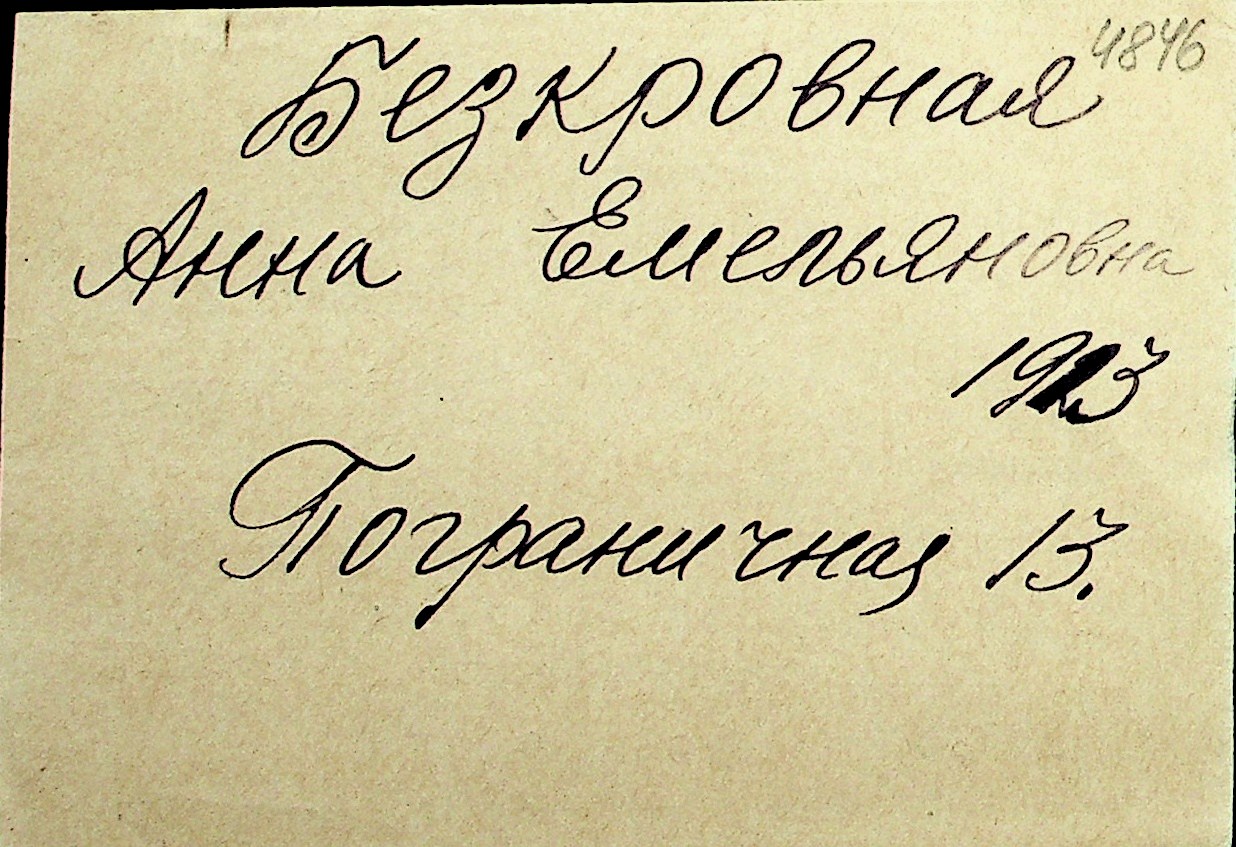 4846
Безкровная
Анна Емельяновна
1923
Пограничная 13.